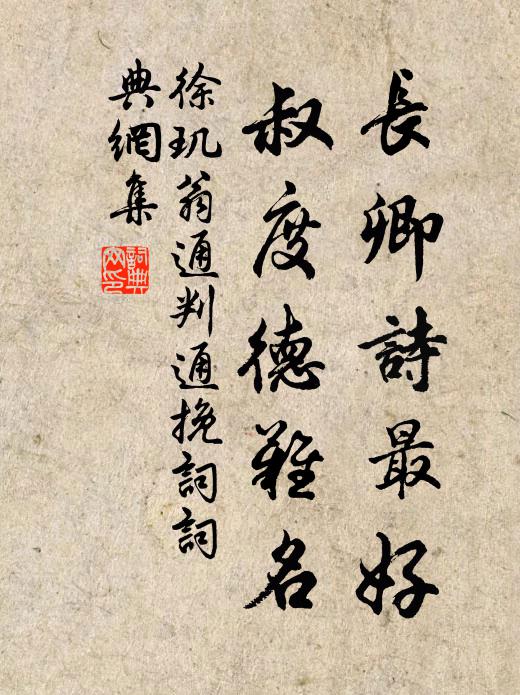 長卿詩最好
叔度德難名
徐玑翁通判通挽詞詞
典網集
詞典